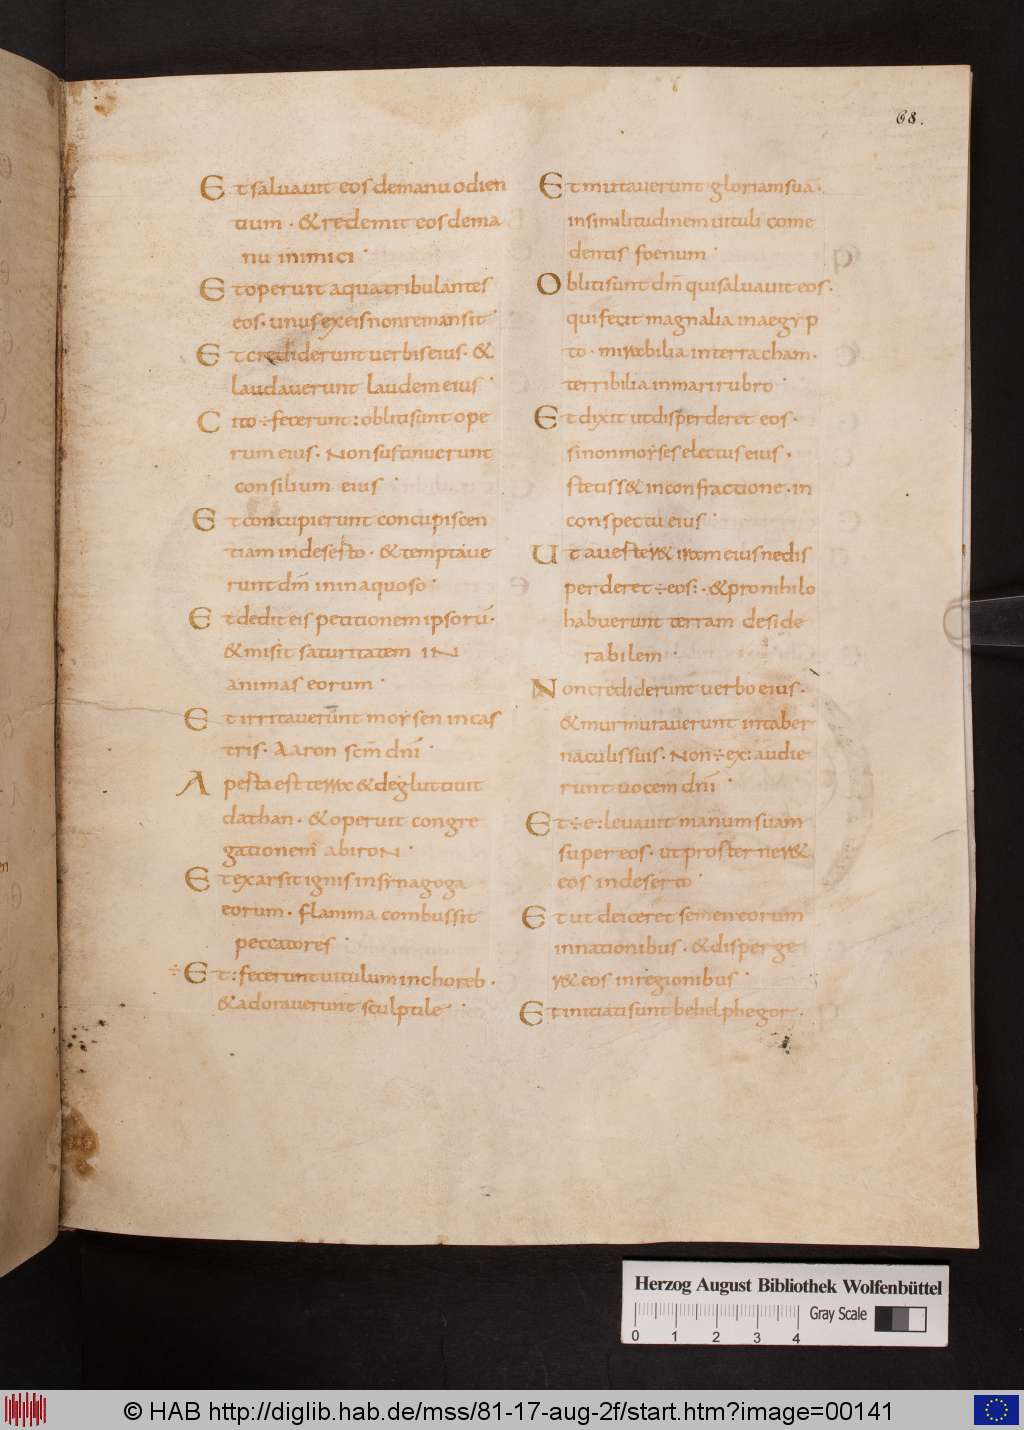 68.
Et saluauit eos demanu odien
tium · & redemit eos dema
nu inimici ·
Et operuit aqua tribulantes
eos · unus ex eis non remansit ·
Et crediderunt uerbis eius · &
laudauerunt laudem eius ·
Cito ÷ fecerunt : obliti sunt ope
rum eius · Non sustinuerunt
consilium eius ·
Et concupierunt concupiscen
tiam in deserto · & temptaue
runt dm̄ in inaquoso ·
Et dedit eis petitionem ipsorū ·
& misit saturitatem iN
animas eorum ·
Et irritauerunt moysen in cas
tris · Aaron scm̄ dnī ·
Aperta est terra & deglutiuit
dathan · & operuit congre
gationem abiroN ·
Et exarsit ignis in synagoga
eorum · flamma combussit
peccatores ·
÷ Et : fecerunt uitulum in choreb ·
& adorauerunt sculptile ·
Et mutauerunt gloriam suā ·
in similitudinem uituli come
dentis foenum ·
Obliti sunt dm̄ qui saluauit eos ·
qui fecit magnalia in aegyp
to · mirabilia in terra cham ·
terribilia in mari rubro ·
Et dixit ut disperderet eos ·
si non moyses electus eius ·
stetiss& in confractione · in
conspectu eius ·
Ut auerter& iram eius ne dis
perderet ÷ eos : · & pro nihilo
habuerunt terram deside
rabilem ·
Non crediderunt uerbo eius ·
& murmurauerunt in taber
naculis suis · Non ÷ ex : audie
runt uocem dnī ·
Et ÷ e : leuauit manum suam
super eos · ut prosterner&
eos in deserto ·
Et ut deiceret semen eorum
in nationibus · & disperge
r& eos in regionibus ·
Et initiati sunt behelphegor ·
Herzog August Bibliothek Wolfenbüttel
Gray Scale
0 1 2 3 4
© HAB http://diglib.hab.de/mss/81-17-aug-2f/start.htm?image=00141